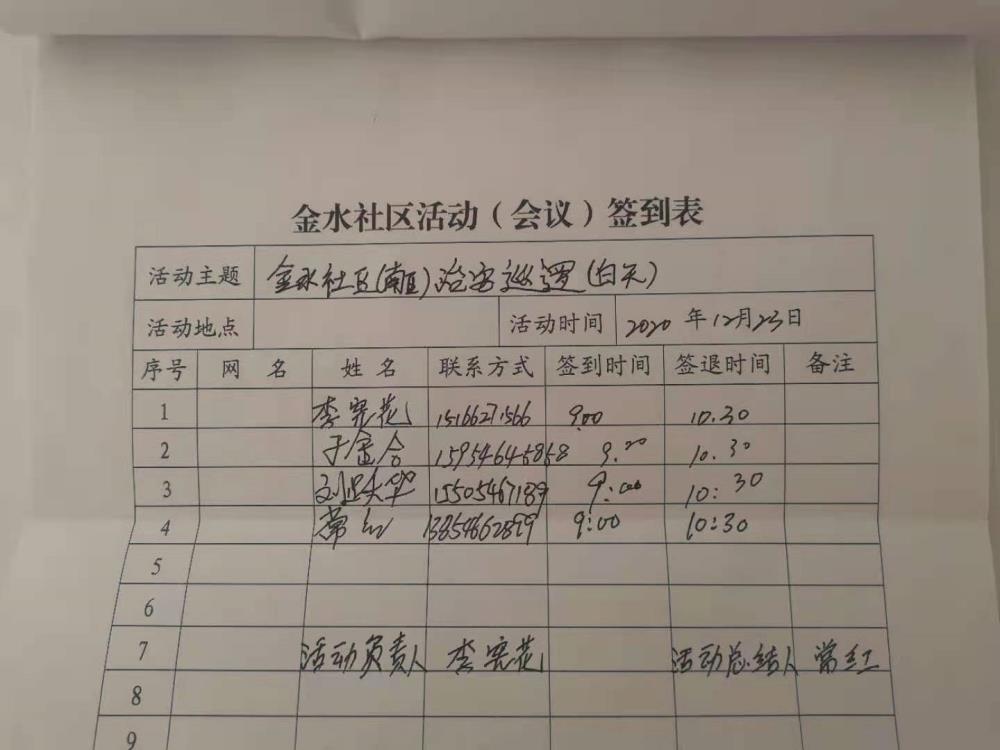 金水社区活动（会议）签到表
活动主题 金水社区(南区)治安巡逻(白天)
活动地点 活动时间 2020年12月23日
序号 网名 姓名 联系方式 签到时间 签退时间 备注
1 李宪花 15166271566 9:00 10.30
2 于金合 15954645868 9.00 10.30
3 15505467189 9:00 10:30
4 常红 13854662899 9:00 10:30
5
6
7 活动负责人 李宪花 活动总结人 常红
8
9